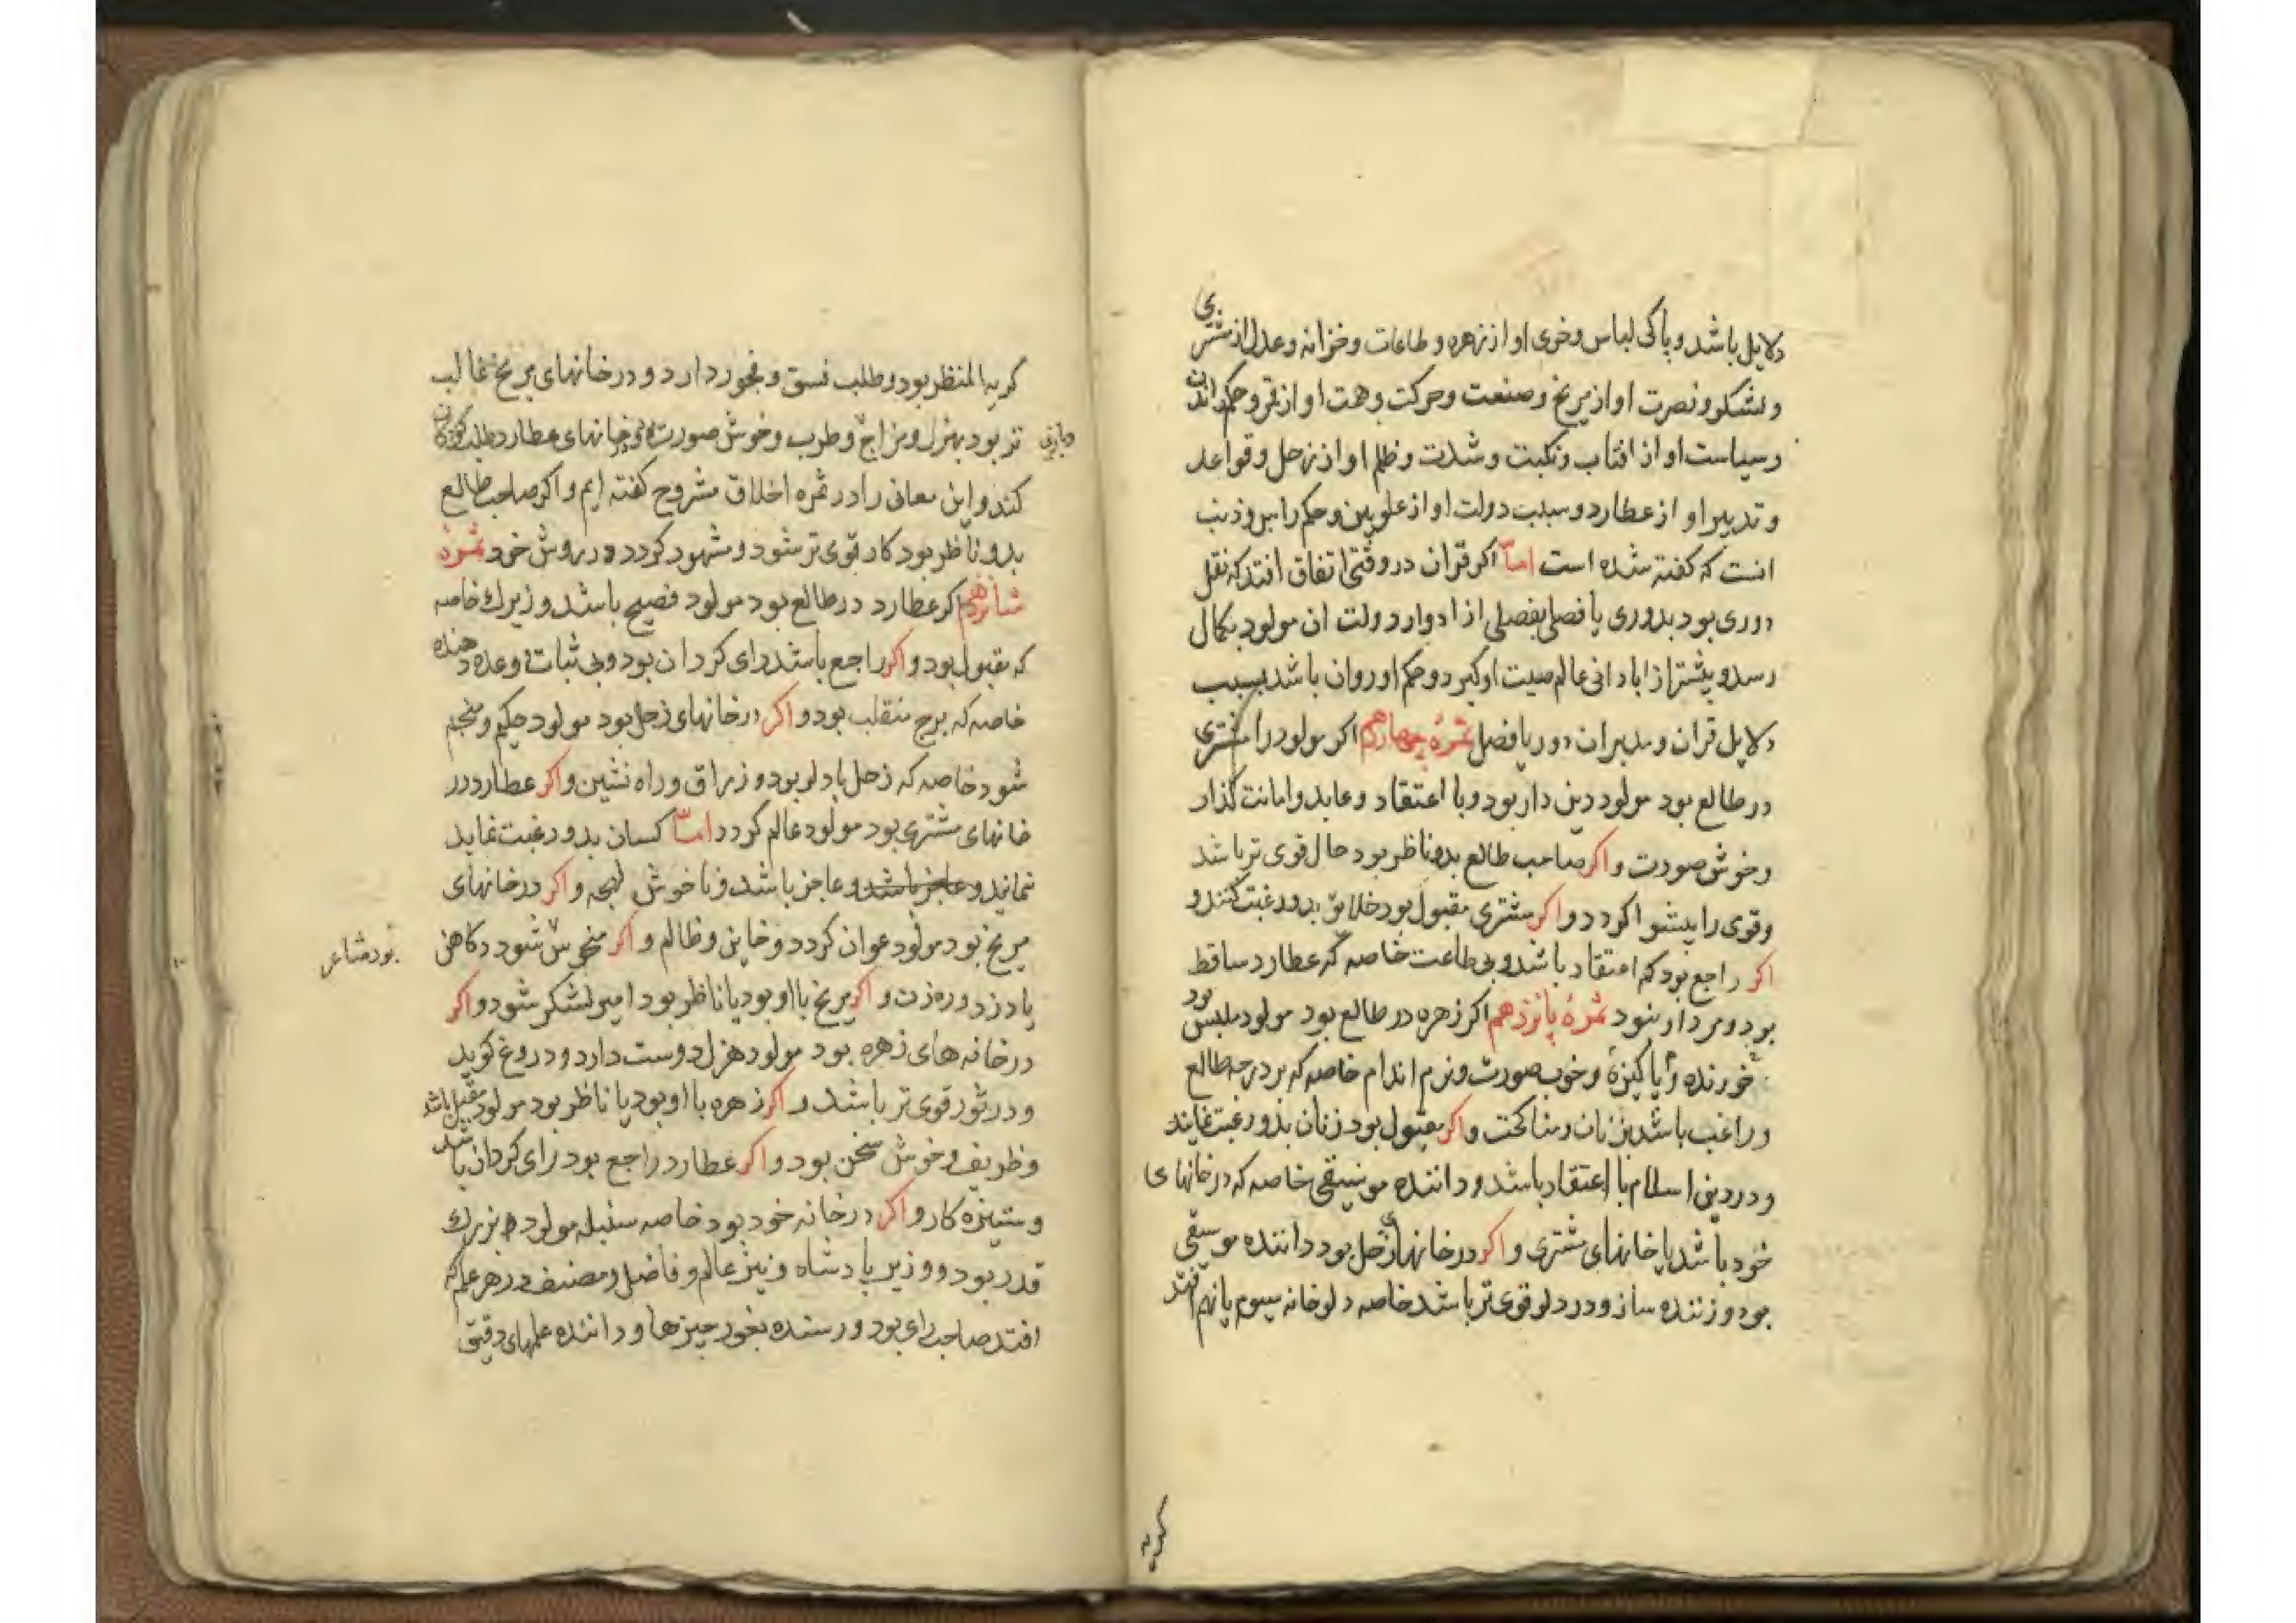 دلایل باشد و پاکی لباس و خوی او از زهره و طاعات و خزانه و عدل از مشتری
و لشکر و نصرت او از مریخ و صنعت و حرکت و همت او از قمر و حکم راندن
و سیاست او از افتاب و نکبت و شدت و ظلم او از زحل و قواعد
و تدبیر او از عطارد و سبب دولت او از علویین و حکم راس و ذنب
انست که کفته شده است اما اکر قران در وقتی اتفاق افتد که نقل
دوری بود بدوری یا فصلی بفصلی از ادوار دولت ان مولود بکمال
رسد و بیشتر از ابادانی عالم صیت او کیرد و حکم او روان باشد بسبب
دلایل قران و مدبران دور یا فصل ثمرهٔ چهاردهم اکر مولود را مشتری
در طالع بود مولود دین دار بود و با اعتقاد و عابد و امانت کذار
و خوش صورت و اکر صاحب طالع بدو ناظر بود حال قوی تر باشد
وقوی را پیشوا کردد و اکر مشتری مقبول بود خلایق بدو رغبت کنند و
اکر راجع بود کم اعتقاد باشد و بی طاعت خاصه که عطارد ساقط
بود ثمرهٔ پانزدهم اکر زهره در طالع بود مولود ملبس بود
خورنده و پاکیزه و خوب صورت و نرم اندام خاصه که بر درجه طالع
و راغب باشد بزنان و مناکحت و اکر مقبول بود زنان بدو رغبت نمایند
و در دین اسلام با اعتقاد باشد و داننده موسیقی خاصه که در خانهای
خود باشد یا خانهای مشتری و اکر در خانهای زحل بود داننده موسیقی
بود و زننده ساز و در دلو قوی تر باشد خاصه دلو خانه سیوم یا نهم افتد
کریه
کریه المنظر بود و طلب فسق و فجور دارد و در خانهای مریخ غالب
تر بود بهزل و مزاح و طرب و خوش صورت و در خانهای عطارد طلب کودکان
کند و این معانی را در ثمره اخلاق مشروح کفته ایم و اکر صاحب طالع
بدو ناظر بود کار قوی تر شود و مشهور کردد در روش خود ثمرهٔ
شانزدهم اکر عطارد در طالع بود مولود فصیح باشد و زیرک خاصه
که مقبول بود و اکر راجع باشد رای کردان بود و بی ثبات و وعده دهنده
خاصه که برج منقلب بود و اکر در خانهای زحل بود مولود حکیم و منجم
شود خاصه که زحل با دلو بود و زراق و راه نشین و اکر عطارد در
خانهای مشتری بود مولود عالم کردد اما کسان بدو رغبت نماید
نمایند و عاجز باشد و عاجز باشد و ناخوش لهجه و اکر در خانهای
مریخ بود مولود عوان کردد و خاین و ظالم و اکر منحوس شود کاهن
بود شاعر
یا دزد و ره زن و اکر مریخ با او بود یا ناظر بود امیر لشکر شود و اکر
در خانه های زهره بود مولود هزل دوست دارد و دروغ کوید
و در ثور قوی تر باشد و اکر زهره با او بود یا ناظر بود مولود مقبل باشد
و ظریف و خوش سخن بود و اکر عطارد راجع بود رای کردان باشد
و ستیزه کار و اکر در خانه خود بود خاصه سنبله مولود بزرک
قدر بود و وزیر پادشاه و نیز عالم و فاضل و مصنف در هر علم که
افتد صاحب رای بود و رسنده بغور چیزها و داننده علمهای دقیق